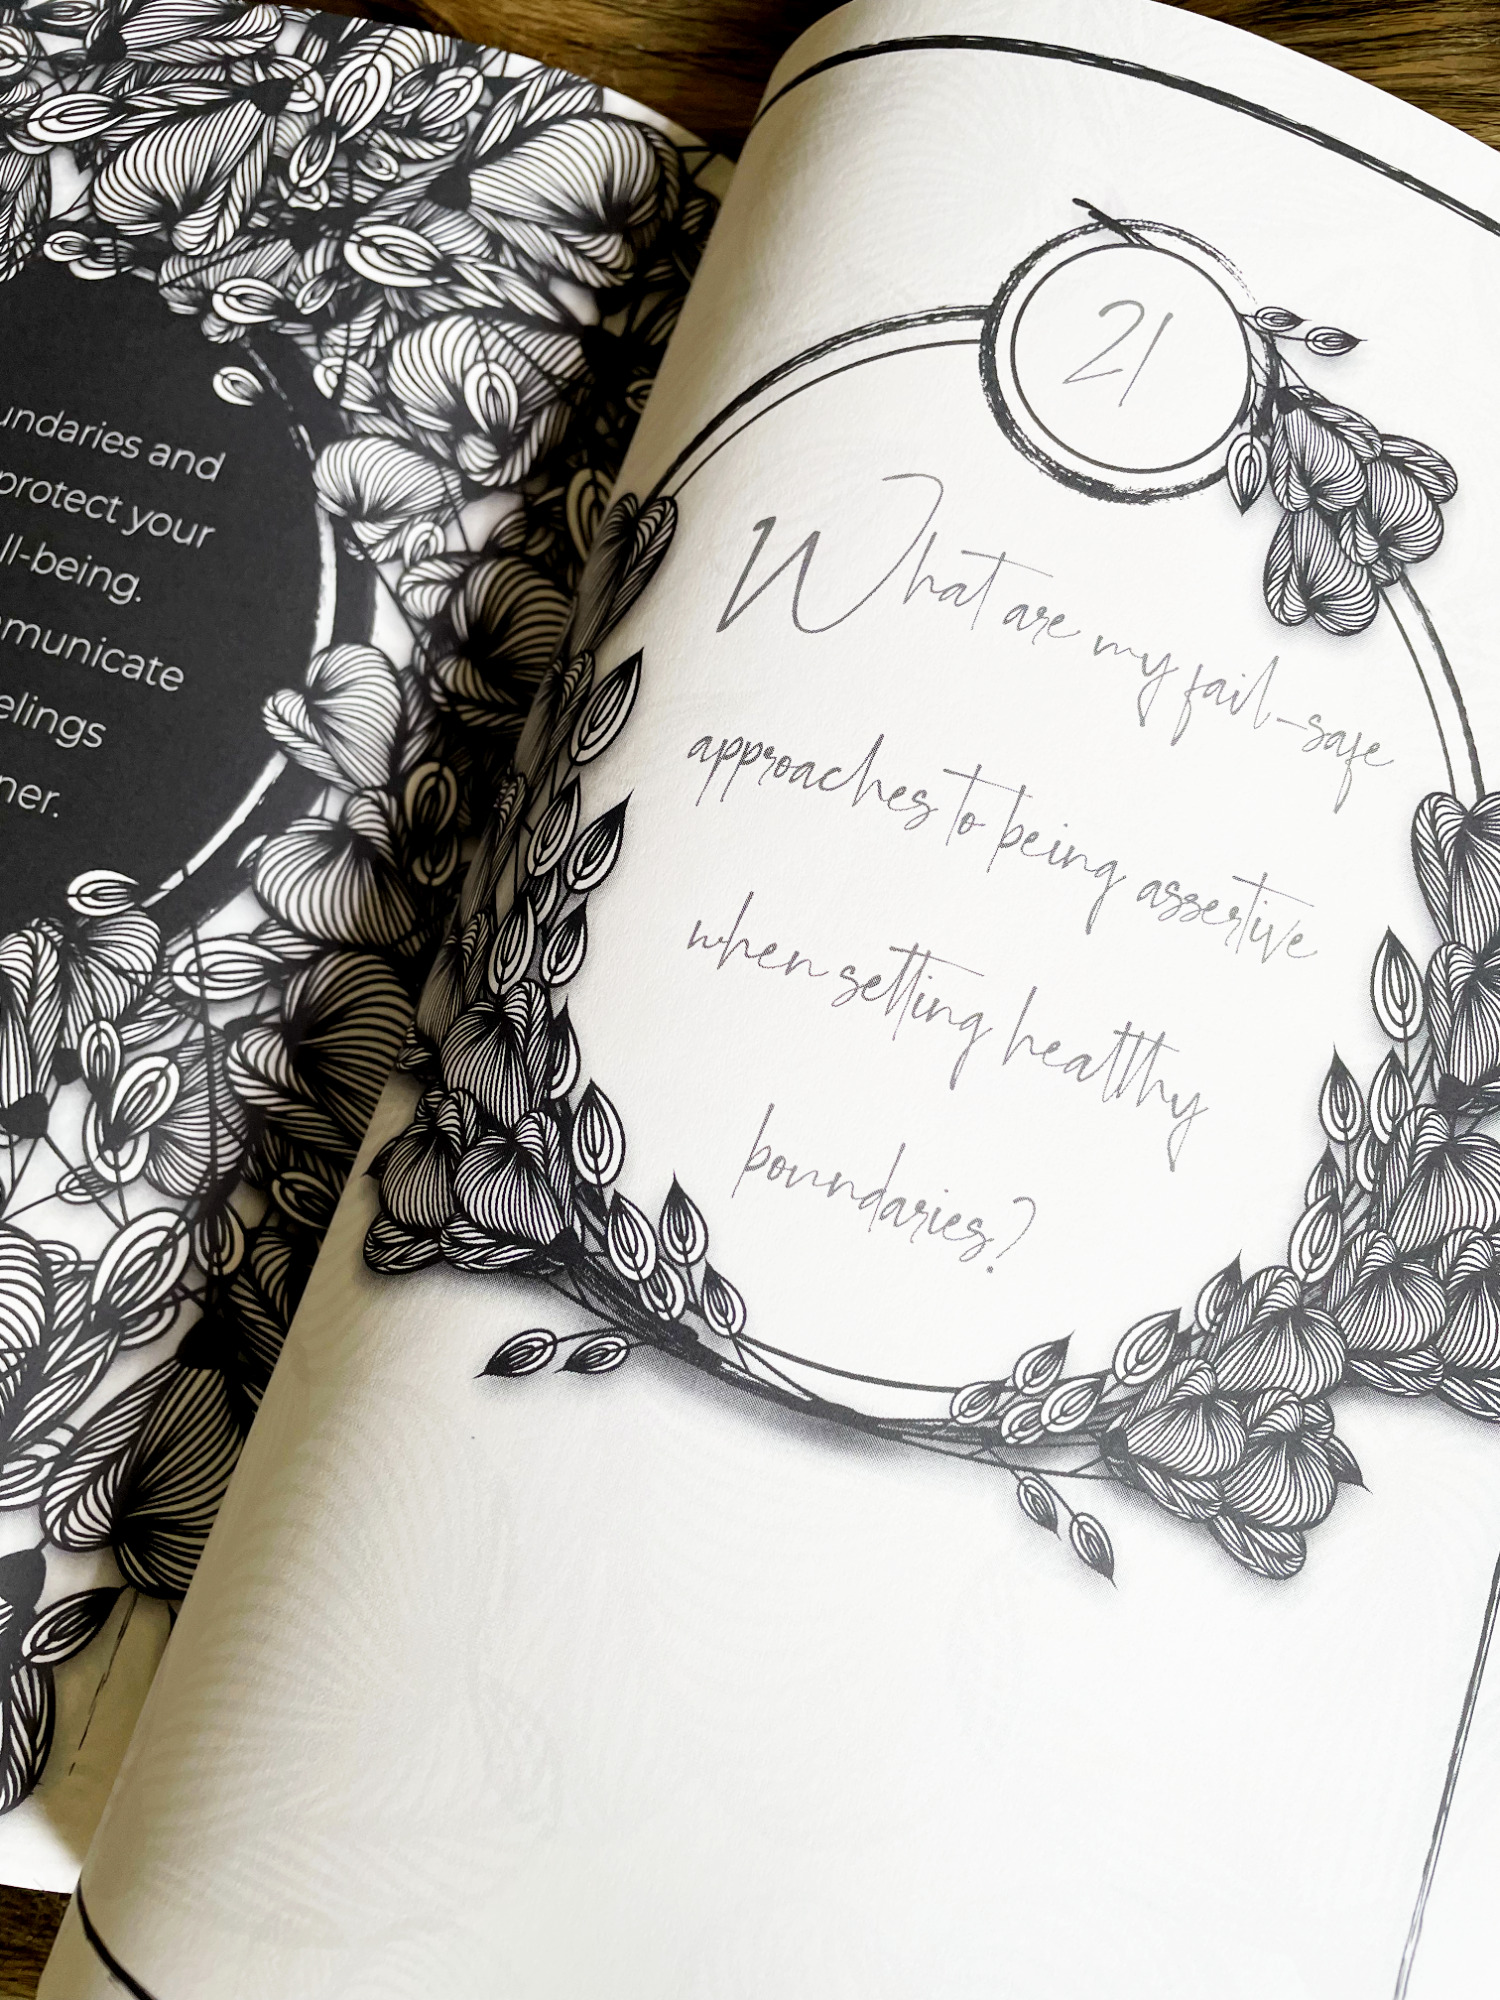 undaries and
protect your
ll-being.
mmunicate
elings
ner.
21
What are my fail-safe
approaches to being assertive
when setting healthy
boundaries?